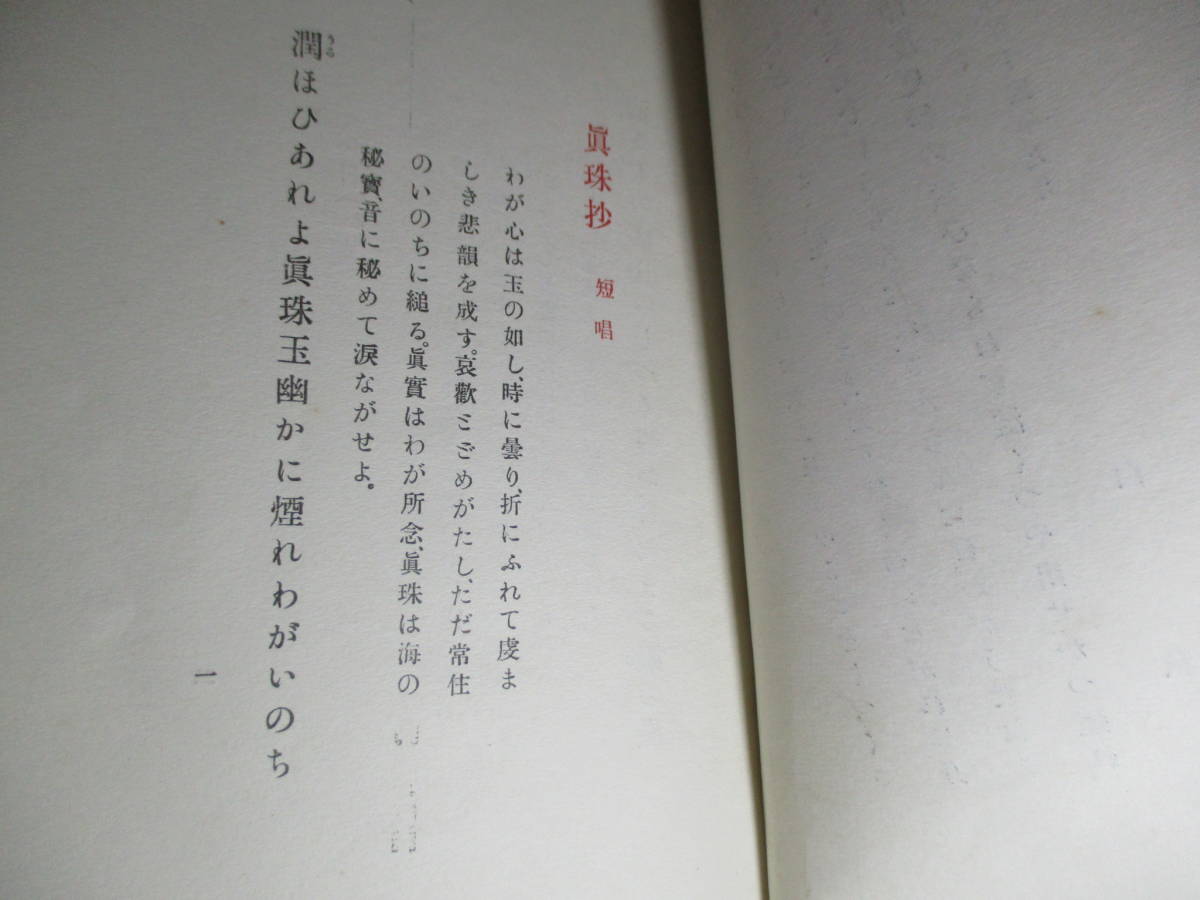 眞珠抄 短唱
わが心は玉の如し、時に曇り、折にふれて虔ま
しき悲韻を成す。哀歡とどめがたし、ただ常住
のいのちに縋る。眞實はわが所念、眞珠は海の
秘寶、音に秘めて涙ながせよ。
潤ほひあれよ眞珠玉幽かに煙れわがいのち
一